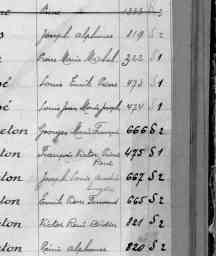 Joseph Alphonse 819 S 2
Pierre Marie Michel 322 S 1
Louis Emile Pierre 473 S 1
Louis Jean Marie Joseph 474 S 1
elon Georges Marie François 666 S 2
elon François Victor Pierre René 475 S 1
elon Joseph Louis André 667 S 2
elon Emile Pierre Fernand 665 S 2
elon Victor René Didier 821 S 2
elon Alphonse 820 S 2